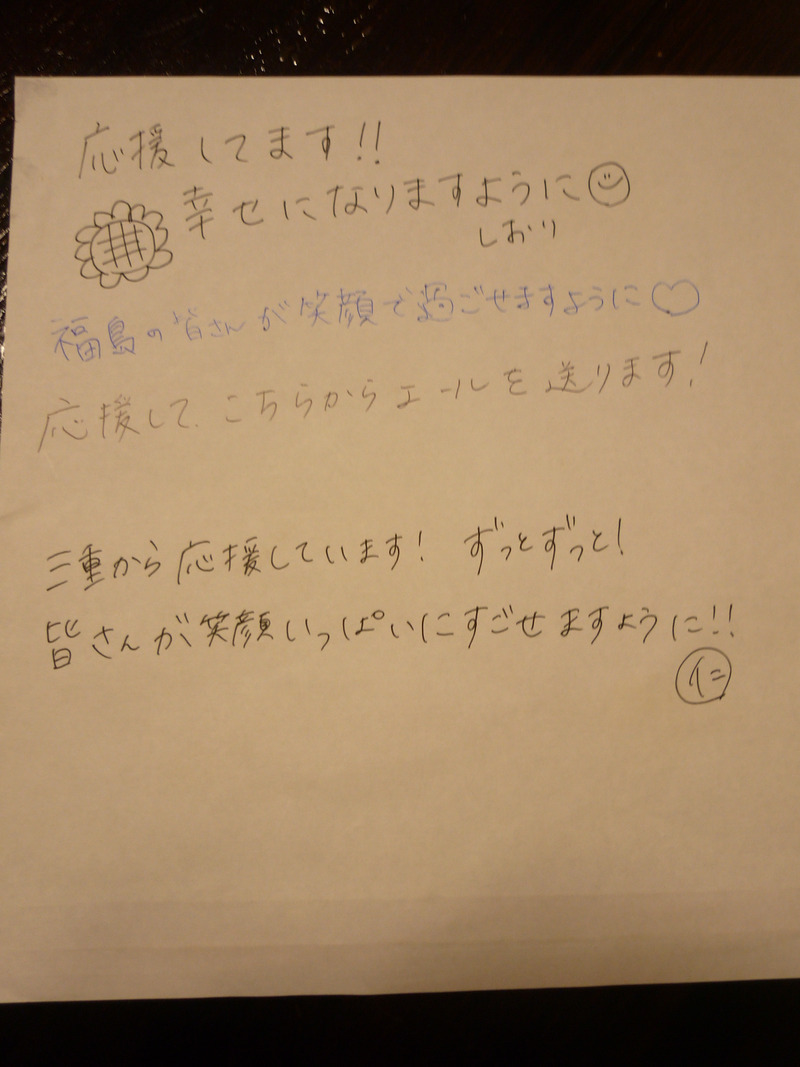 応援してます!!
幸せになりますように
しおり
福島の皆さんが笑顔で過ごせますように♡
応援して、こちらからエールを送ります!
三重から応援しています! ずっとずっと!
皆さんが笑顔いっぱいにすごせますように!!
仁